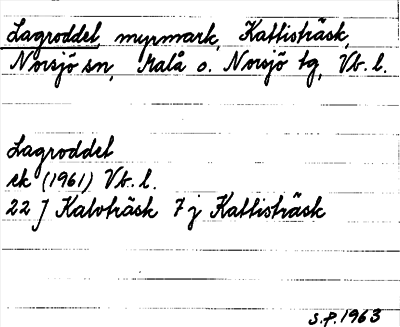 Lagroddel myrmark, Kattisträsk,
Norsjö sn, Malå o. Norsjö tg, Vb. l.
Lagroddel
ek (1961) Vb. l.
22 J Kalvträsk 7 j Kattisträsk
S.P. 1963